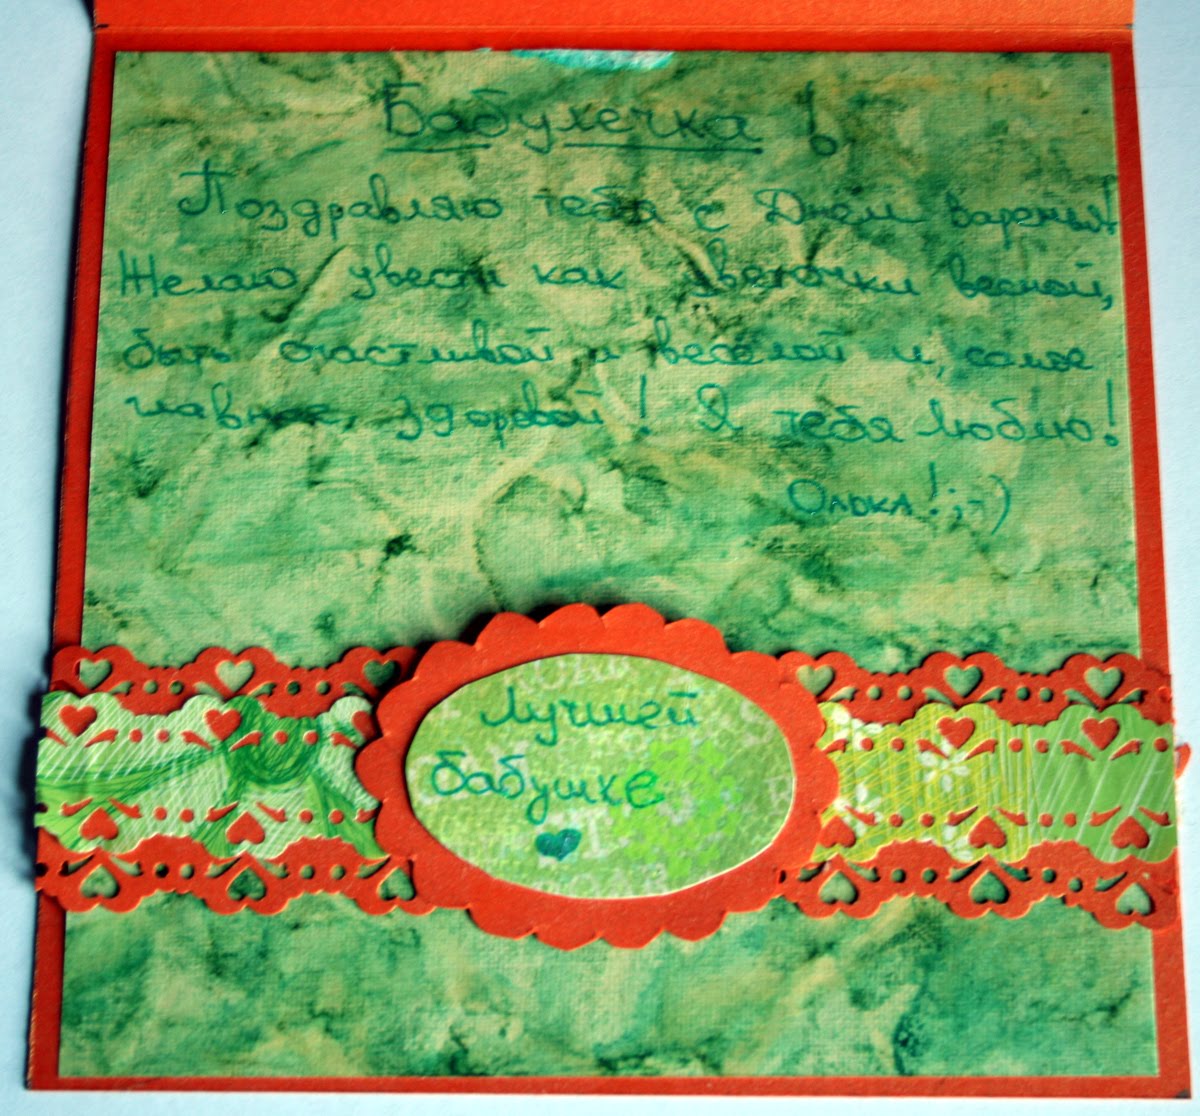 Бабулечка!
Поздравляю тебя с Днём варенья!
Желаю цвести как цветочки весной,
быть счастливой и весёлой и, самое
главное, здоровой! Я тебя люблю!
Олька!;-)
Лучшей
бабушке